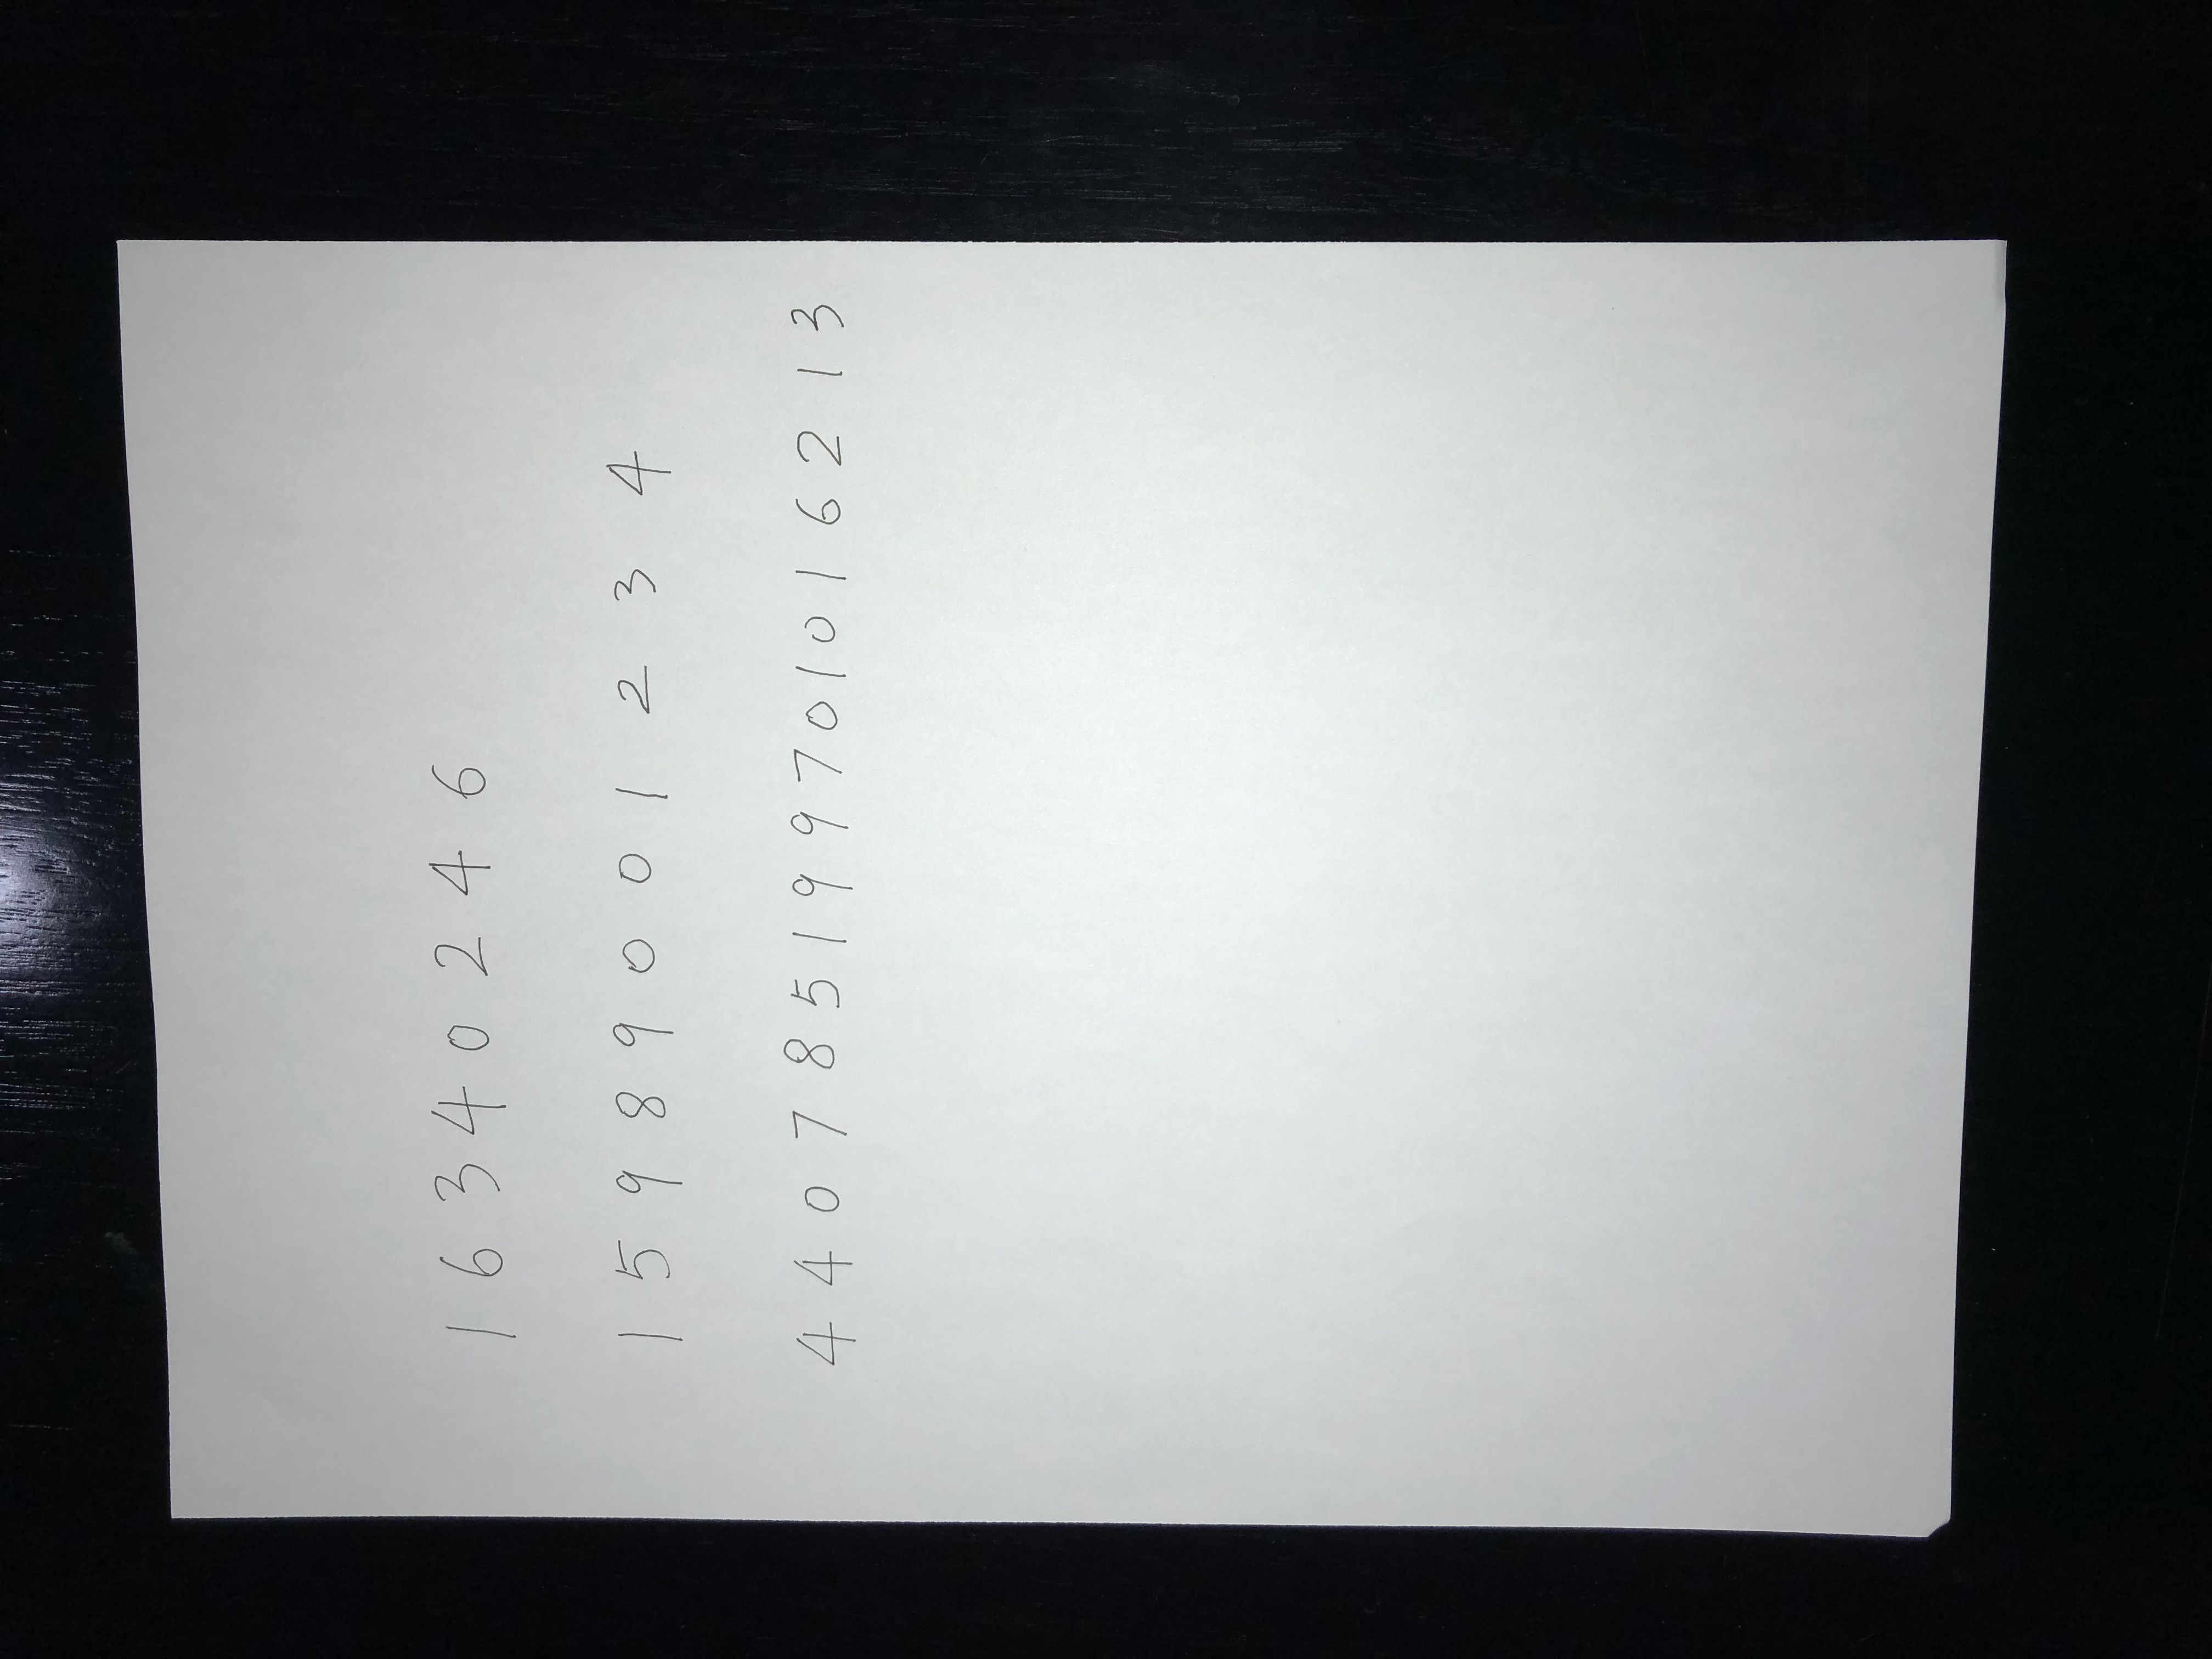 1 6 3 4 0 2 4 6
1 5 9 8 9 0 0 1 2 3 4
4 4 0 7 8 5 1 9 9 7 0 1 0 1 6 2 1 3